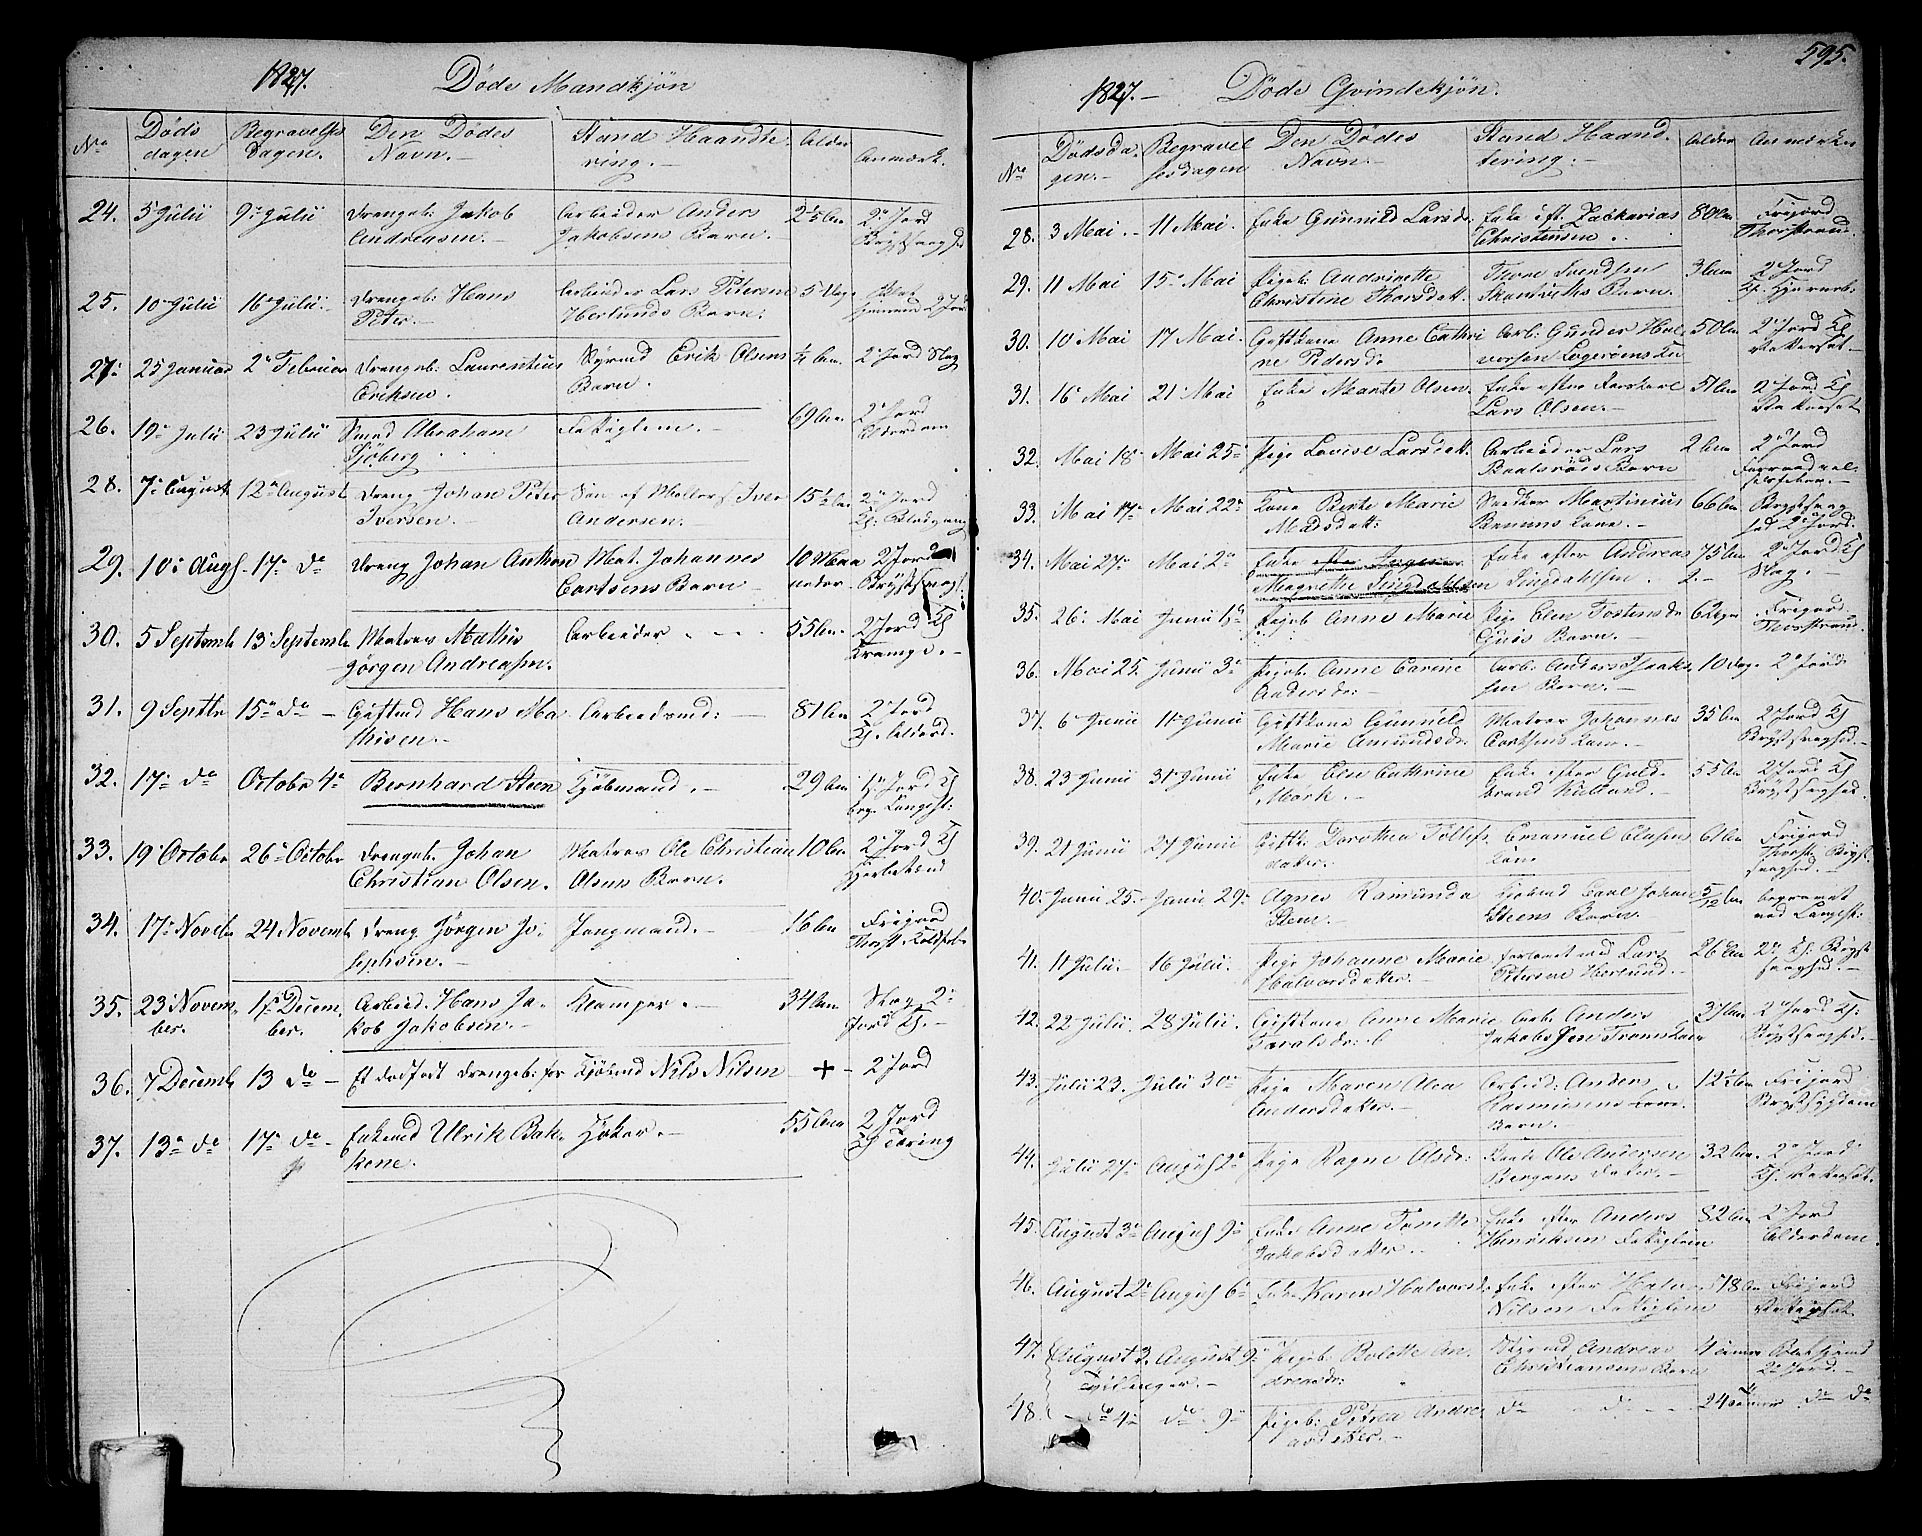 1827. Døde Mandkjøn
No Døds dagen Begravelses Dagen. Den Dødes Navn. Stand Haandtering. Alder Anmærk.
24. 5 Julii 9 Julii Drengeb: Jakob Andreasen. Arbeider Anders Jakobsens Barn. 2½ Aar 2 Jord Brystsvaghed
25. 10 Julii 16 Julii Drengeb: Hans Peter. Arbeider Lars Petersen Herlunds Barn. 5 Dage 2 Jord
27. 25 Januar 2 Februar Drengeb: Laurentius Eriksen. Styrmd Erik Olsens Barn. ¼ Aar 2 Jord Slag
26. 19 Julii 23 Julii Smed Abraham Sjöberg Fattiglem. 69 Aar 2 Jord Alderdom
28. 7 August 12 August Dreng Johan Peter Iversen. Søn af Møller Iver Andersen. 15½ Aar 2 Jord Kl: Blodgang
29. 10 Augs 17 do Dreng Johan Anthon Mat. Johannes Carlsens Barn 10 Maaneder 2 Jord Brystsvagh:
30. 5 Septemb 13 Septemb Matros Mathis Jørgen Andreasen. Arbeider 55 Aar 2 Jord Kl Krampe.
31. 9 Septbr 15 do Giftmd Hans Mathisen. Arbeidsmd: 81 Aar 2 Jord Kl. Alderd.
32. 17 do Octobr 4 Bernhard Steen Kjøbmand. 29 Aar Jord Kl beg. Langest:
33. 19 Octobr 26 Octobr Drengeb. Johan Christian Olsen. Matros Ole Christian Olsens Barn. 10 Aar 2 Jord Kl
34. 17 Novbr 24 Novemb Dreng Jørgen Josephsen. Jungmand. 16 Aar Frijord Thorst: Koldfeb.
35. 23 November. 1 December. Arbeid. Hans Jakob Jakobsen. Klamper. 34 Aar Slag 2 Jord Kl.
36. 7 Decemb 13 do Et dødfødt Drengeb: for Kjøbmd Nils Nilsen + 2 Jord
37. 13 do 17 do Enkemd Ulrik Bakkene. Høker. 55 Aar 2 Jord Kl Tæring
595.
1827. Døde Qvindekjøn.
No Dødsdagen. Begravelsesdagen Den Dødes Navn. Stand Haandtering. Alder Anmærkn
28. 3 Mai. 11 Mai. Enke Gunnild Larsdr Enke eft. Zackarias Christensen. 80 Aar Frijord Thorstrand.
29. 11 Mai 15 Mai Pigeb. Andrinette Christine Thorsdatt. Thore Svendsen Barn. 3 Aar 2 Jord
30. 10 Mai 17 Mai. Giftkone Anne Cathrine Pedersdr Arb: Gunder Halvorsen 50 Aar 2 Jord Kl Vattersot
31. 16 Mai 21 Mai Enke Marte Olsen. Enke efter Lars Olsen. 51 Aar 2 Jord Kl Vattersot
32. Mai 18 Mai 25 Pige Lovise Larsdatt. Arbeider Lars Baalsrøds Barn 2 Aar 2 Jord
33. Mai 17 Mai 22 Kone Berte Marie Madsdatt: Snedker Martinius Bruuns Kone. 66 Aar Brystsvaghed 2 Jord.
34. Mai 27 Mai 2 Enke Magrethe Lingdahlsen Enke efter Andreas Lingdahlsen. 75 Aar 2 Jord Kl Slag.
35. 26 Mai Junii 6 Pigeb Anne Marie Pige Elen Tostensdr Barn. 6 Uger Frijord Thorstrand.
36. Mai 25 Junii 3 Pigeb. Anne Carine Andersdr: Arb. Anders Isaaksen Barn. 10 Dage 2 Jord
37. 6 Junii 11 Junii Giftkone Gunnild Marie Amundsdr. Matros Johannes Carlsens Kone. 35 Aar 2 Jord Kl Brystsvaghed.
38. 23 Junii 31 Junii Enke Else Cathrine Mørk. Enke efter Guldbrand Kielland. 55 Aar 2 Jord Kl Brystsvaghed.
39. 21 Junii 27 Junii Giftk. Dorothea Tollefsdatter. Emanuel Olasens Kone 61 Aar Frijord Thorst: Brystsvaghed.
40. Junii 25. Junii 29 Agnes Raimunda Steen. Kjøbmd Carl Johan Steens Barn. 5/12 Aar begravet ved Langest:
41. 11 Julii. 16 Julii. Pige Johanne Marie Halvorsdatter. forlovet med Lars Petersen Herlund. 26 Aar 2 Kl. Brystsvaghed.
42. 22 Julii. 28 Julii. Giftkone Anne Marie Taraldsdr: Arb. Anders Jakobsen 37 Aar 2 Jord Kl: Brystsvaghed.
43. Julii 23. Julii 30 Pige Maren Alea Andersdatter. Arbeid: Anders Rasmusens Barn. 12½ Aar Frijord Brystsygdom
44. Julii 27 Augus 2 Pige Ragne Olsdr: Ole Andersen Bergans Datter. 32 Aar 2 Jord Kl. Vattersot.
45. August 3 Augus 9 Enke Anne Tonette Jakobsdatter. Enke efter Anders Henriksen Fattiglem 82 Aar 2 Jord Alderdom.
46. August 2 Augus 6 Enke Karen Halvorsdr Enke efter Nilsen Fattiglem 78 Aar Frijord Vattersot
47. August 3. August 9 Pigeb: Bolette Andreasdr: Styrmd Andreas Christiansens Barn 4 2 Jord.
Tvillinger.
48. do 4 do 9 Pigeb: Petrea Andreasdatter. do do 24 do do